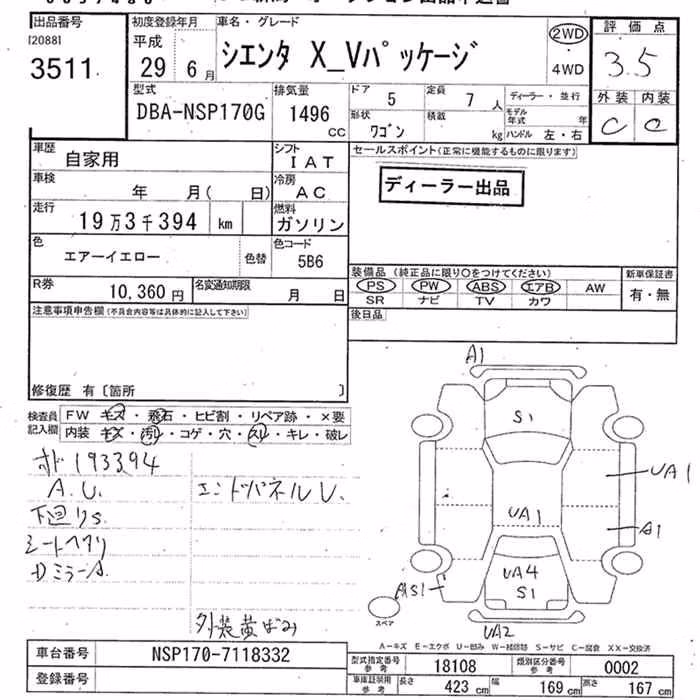 出品番号
[20881]
3511
初度登録年月
平成
29年 6月
車名・グレード
シエンタ X_Vパッケージ
2WD
4WD
評価点
3.5
外装 内装
C C
型式
DBA-NSP170G
排気量
1496
CC
ドア 5
定員 7人
形状 ワゴン
積載 kg
ディーラー・並行
モデル年式 年
ハンドル 左・右
車歴
自家用
シフト
IAT
車検
年 月( 日)
冷房
AC
走行
19万3千394 km
燃料
ガソリン
色
エアーイエロー
色替
色コード
5B6
R券
10,360円
名変通知期限
月 日
セールスポイント(正常に機能するものに限ります)
ディーラー出品
装備品 (純正品に限り〇をつけてください)
PS PW ABS エアB AW
SR ナビ TV カワ
新車保証書
有・無
後日品
注意事項申告欄(不具合内容等は具体的に記入して下さい)
修復歴 有〔箇所 〕
検査員記入欄
FW キズ・飛石・ヒビ割・リペア跡・×要
内装 キズ・汚レ・コゲ・穴・スレ・キレ・破レ
オド 193394
A.U.
下回りS
シートヘタリ
DミラーA.
エンドパネルU.
外装黄ばみ
A1
S1
UA1
UA1
A1
UA4
S1
AS1
UA2
スペア
A-キズ E-エクボ U-凹み W-補修跡 S-サビ C-腐食 XX-交換済
車台番号
NSP170-7118332
登録番号
型式指定番号 参考
18108
類別区分番号 参考
0002
車庫証明用 参考
長さ 423 cm
幅 169 cm
高さ 167 cm